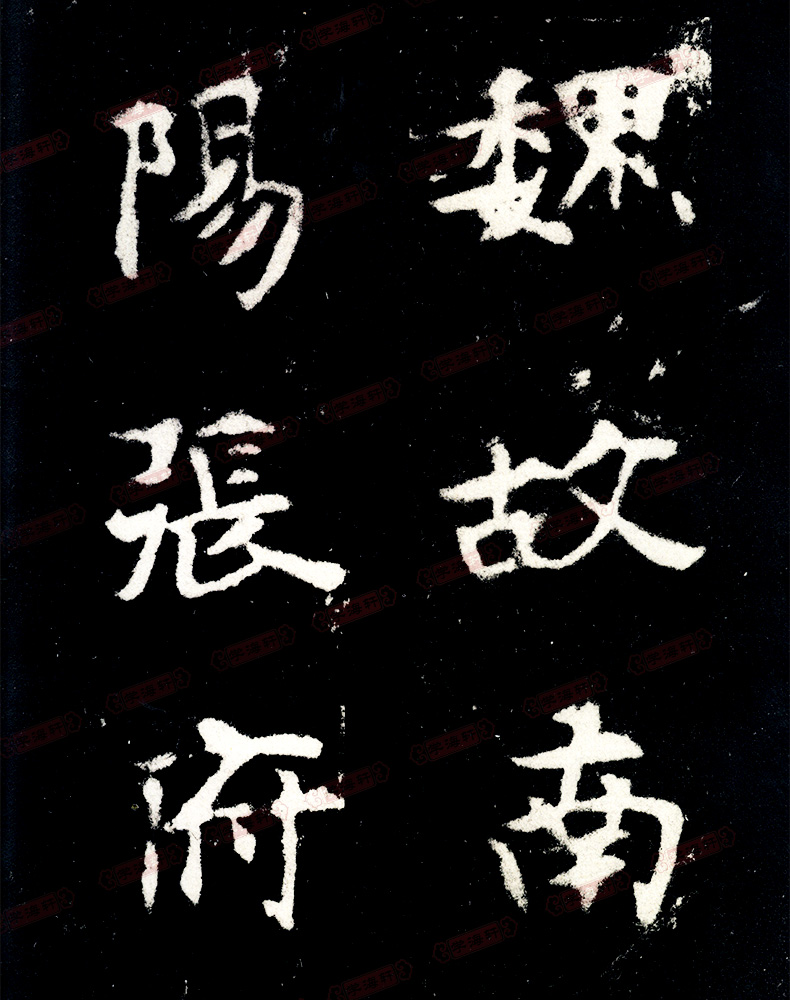 魏故南
陽張府